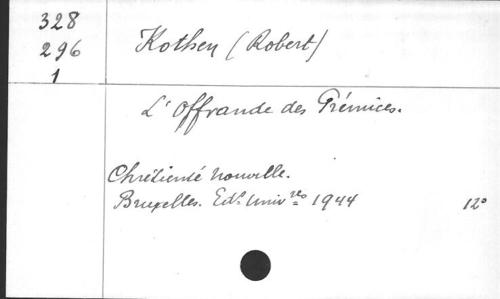 328
296
1
Kothen (Robert)
L'Offrande des Prémices.
Chrétienté nouvelle.
Bruxelles. Edns Univres 1944 12°